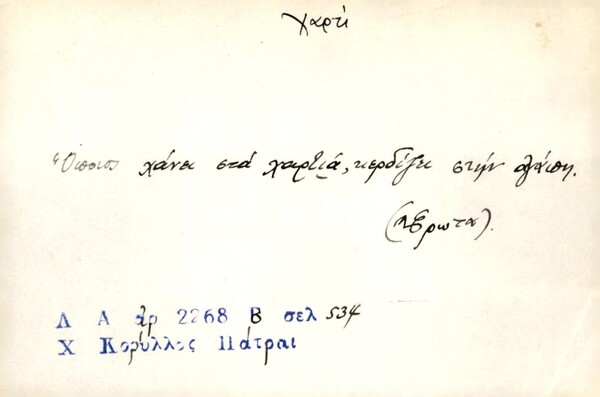 χαρτί
Ὅποιος χάνει στά χαρτιά, κερδίζει στήν ἀγάπη.
(Ἔρωτα).
Λ Α ἀρ 2268 Β σελ 534
Χ Κορύλλος Πάτραι